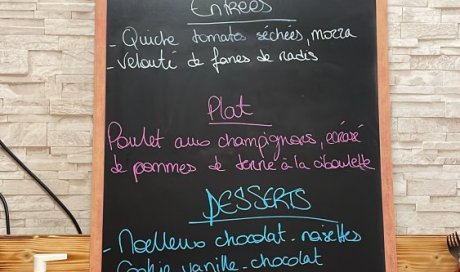 Entrées
- Quiche tomates séchées, mozza
- Velouté de fanes de radis
Plat
Poulet aux champignons, écrasé
de pommes de terre à la ciboulette
DESSERTS
- Moelleux chocolat - noisettes
Cookie vanille - chocolat